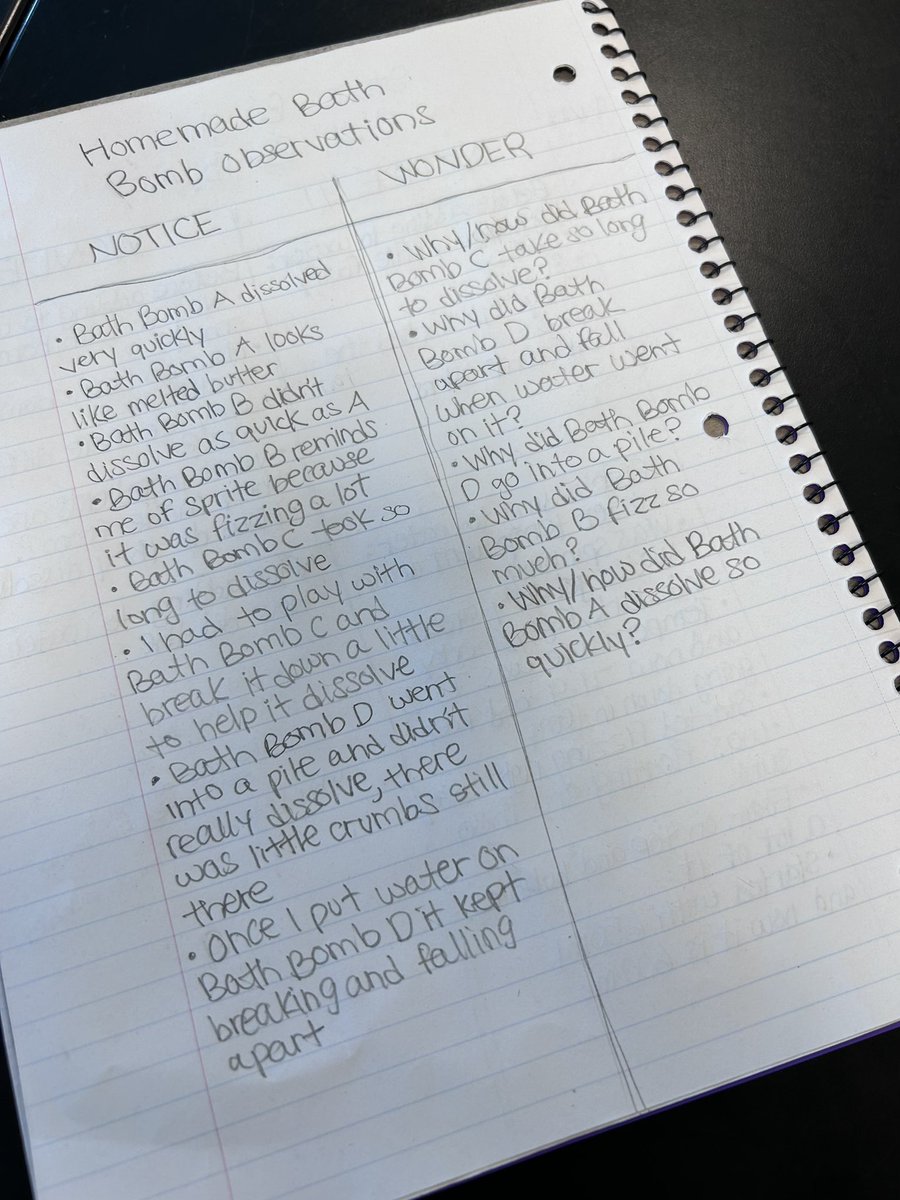 Homemade Bath
Bomb observations
NOTICE
• Bath Bomb A dissolved
very quickly
• Bath Bomb A looks
like melted butter
• Bath Bomb B didn't
dissolve as quick as A
• Bath Bomb B reminds
me of sprite because
it was fizzing a lot
• Bath Bomb C took so
long to dissolve
• I had to play with
Bath Bomb C and
break it down a little
to help it dissolve
• Bath Bomb D went
into a pile and didn't
really dissolve, there
was little crumbs still
there
• Once I put water on
Bath Bomb D it kept
breaking and falling
apart
WONDER
• Why/how did Bath
Bomb C take so long
to dissolve?
• Why did Bath
Bomb D break
apart and fall
when water went
on it?
• Why did Bath Bomb
D go into a pile?
• Why did Bath
Bomb B fizz so
much?
• Why/how did Bath
Bomb A dissolve so
quickly?